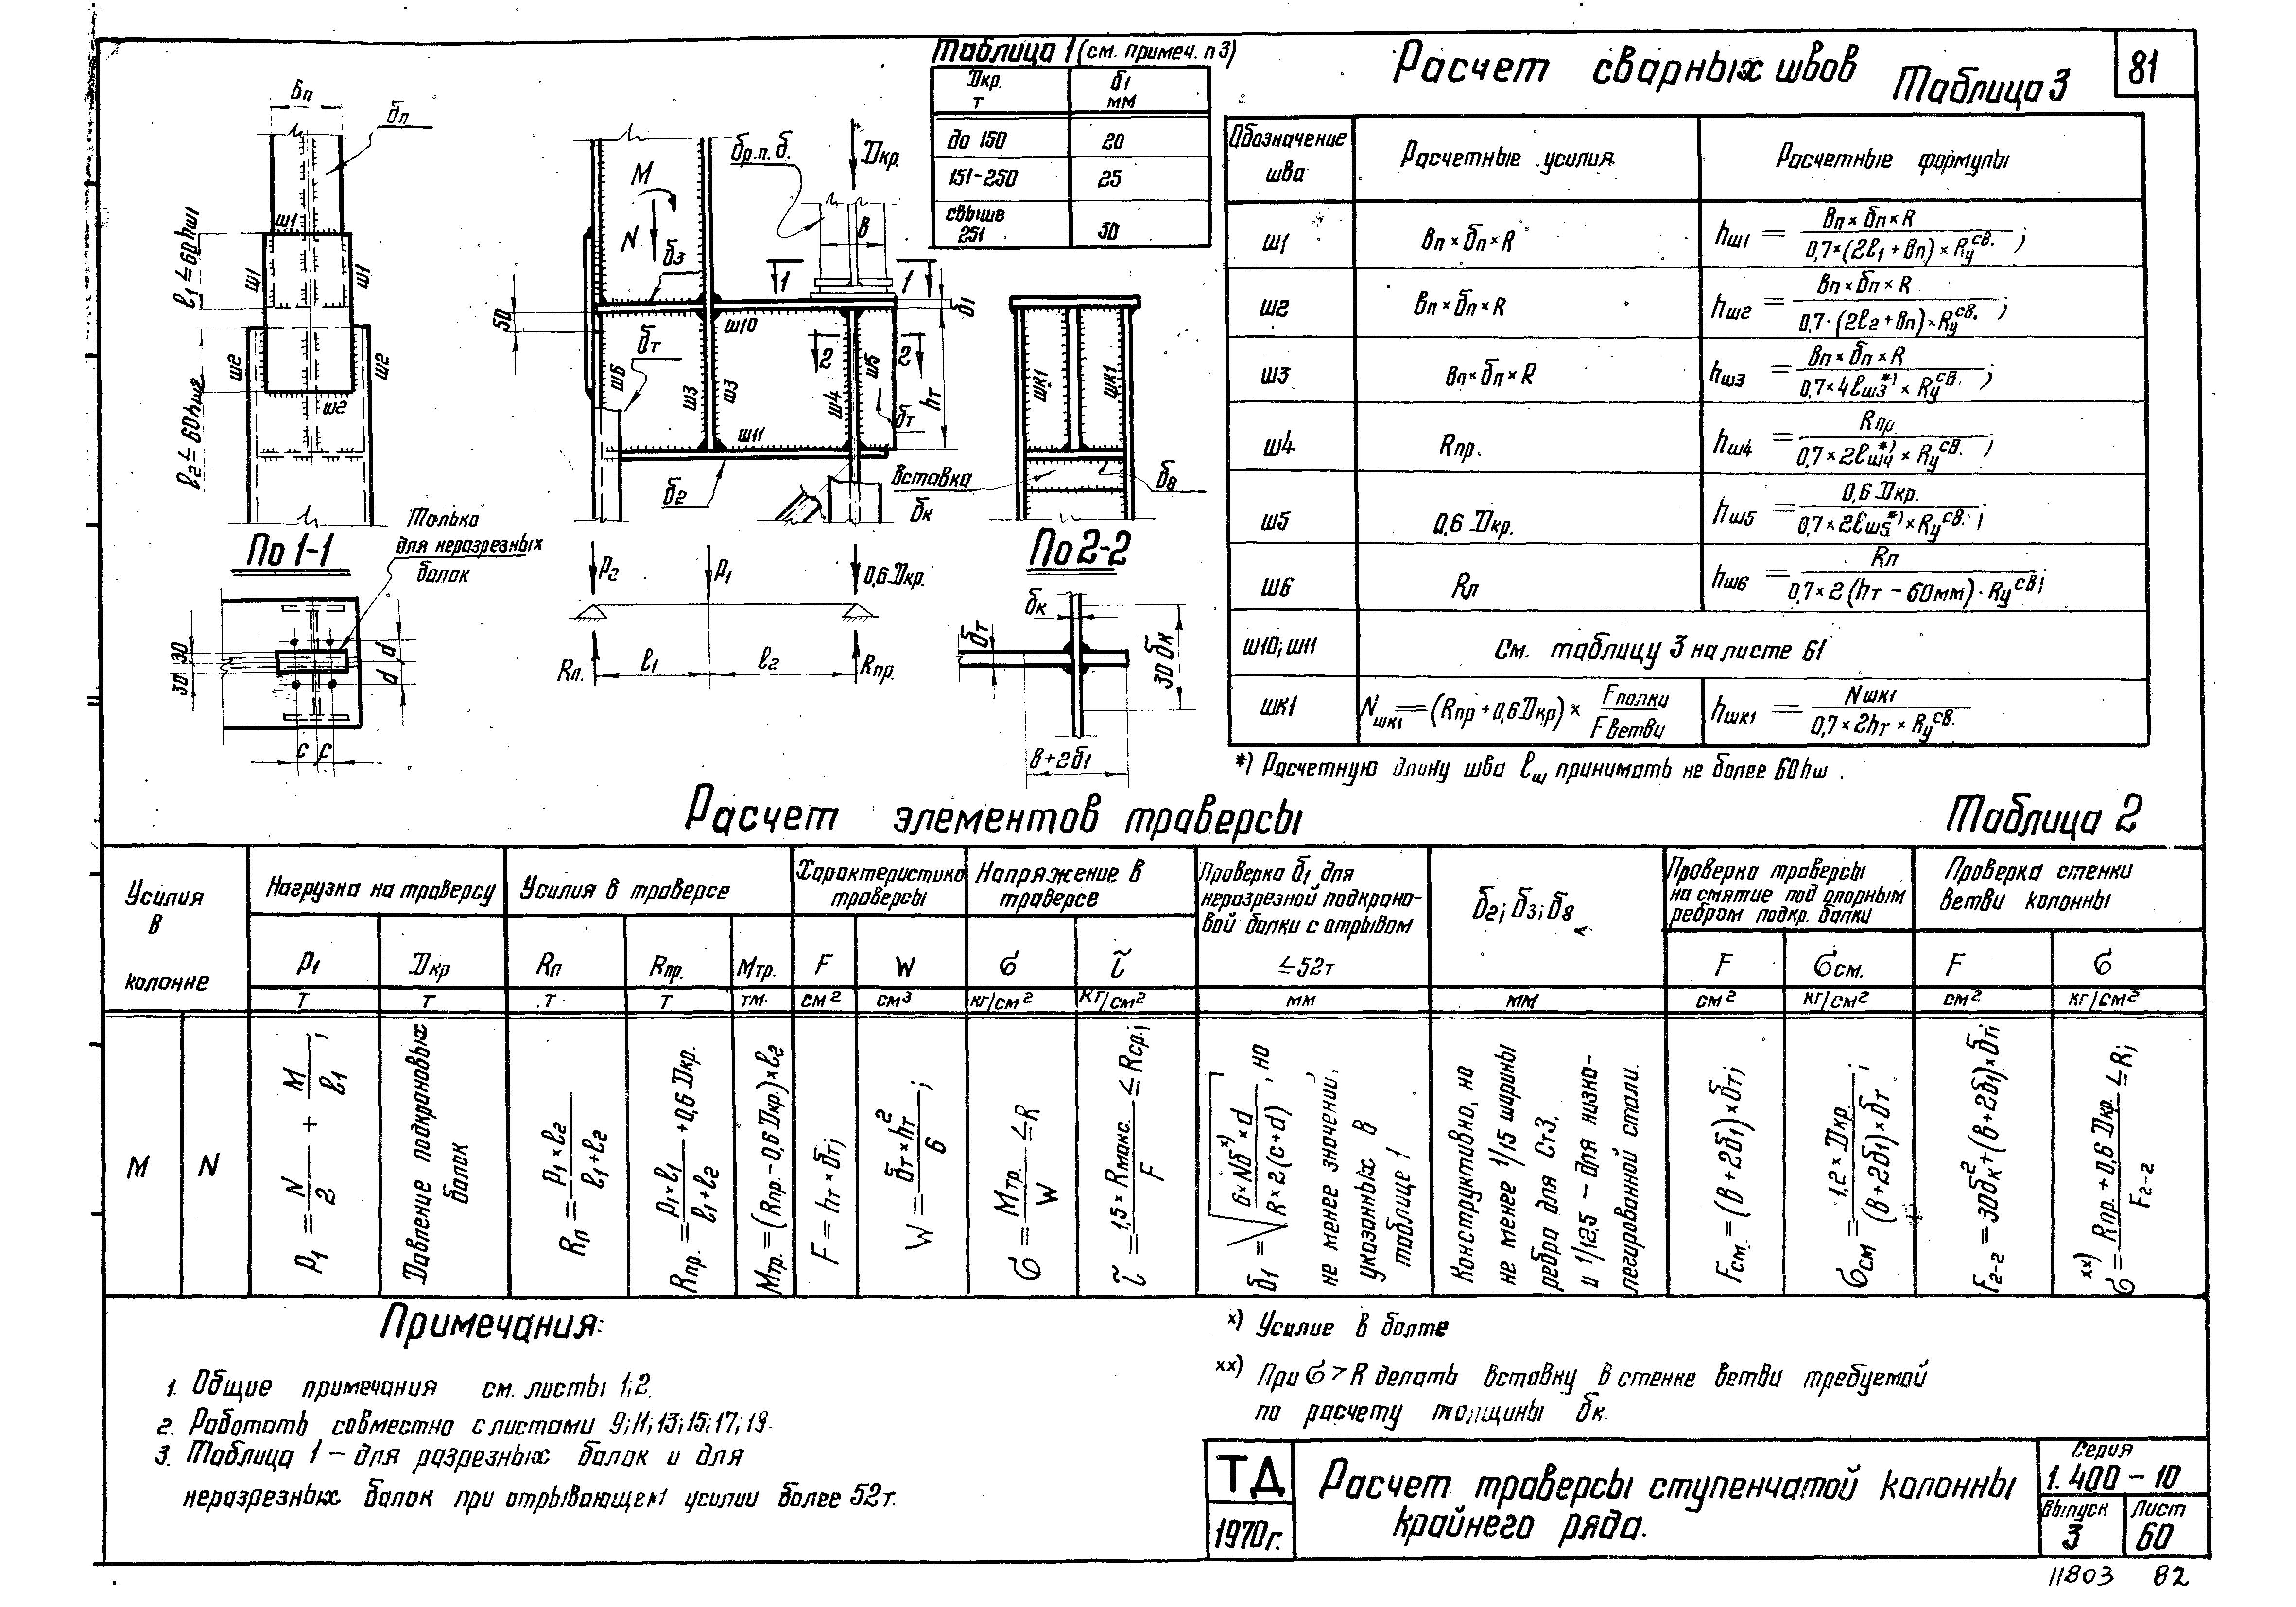 81
Таблица 1 (см. примеч. п3)
Dкр. т | δ1 мм
до 150 | 20
151-250 | 25
свыше 251 | 30
Расчет сварных швов
Таблица 3
Обозначение шва | Расчетные усилия | Расчетные формулы
ш1 | вп × δп × R | hш1 = вп × δп × R / 0,7 × (2ℓ1 + вп) × Rу св. ;
ш2 | вп × δп × R | hш2 = вп × δп × R / 0,7 · (2ℓ2 + вп) × Rу св. ;
ш3 | вп × δп × R | hш3 = вп × δп × R / 0,7 × 4ℓш3 *) × Rу св. ;
ш4 | Rпр. | hш4 = Rпр. / 0,7 × 2ℓш4 *) × Rу св. ;
ш5 | 0,6 Dкр. | hш5 = 0,6 Dкр. / 0,7 × 2ℓш5 *) × Rу св. ;
ш6 | Rп | hш6 = Rп / 0,7 × 2 (hт − 60мм) · Rу св ;
ш10; ш11 | См. таблицу 3 на листе 61
шк1 | Nшк1 = (Rпр + 0,6 Dкр) × Fполки / Fветви | hшк1 = Nшк1 / 0,7 × 2hт × Rу св.
*) Расчетную длину шва ℓш принимать не более 60hш .
вп
δп
ш1
ш1
ш1
ℓ1 ≤ 60hш1
ш2
ш2
ш2
ℓ2 ≤ 60hш2
M
N
δ3
δр.п.б.
Dкр.
в
1
1
50
δ1
ш10
δт
ш6
ш3
ш3
ш4
ш5
2
2
hт
δт
ш11
δ2
шк1
шк1
Вставка
δк
δ8
По 1-1
Только
для неразрезных
балок
30
30
d
d
с
с
P2
P1
0,6 Dкр.
Rп.
ℓ1
ℓ2
Rпр.
По 2-2
δк
δт
30 δк
в+2δ1
Расчет элементов траверсы
Таблица 2
Усилия в колонне | Нагрузка на траверсу | Усилия в траверсе | Характеристика траверсы | Напряжение в траверсе | Проверка δ1 для неразрезной подкрановой балки с отрывом ≤ 52т | δ2; δ3; δ8 | Проверка траверсы на смятие под опорным ребром подкр. балки | Проверка стенки ветви колонны
P1 | Dкр | Rп | Rпр. | Mтр. | F | W | σ | τ | F | σсм. | F | σ
т | т | т | т | тм. | см² | см³ | кг/см² | кг/см² | мм | мм | см² | кг/см² | см² | кг/см²
M
N
P1 = N/2 + M/ℓ1 ;
Давление подкрановых балок
Rп = P1 × ℓ2 / ℓ1 + ℓ2
Rпр. = P1 × ℓ1 / ℓ1 + ℓ2 + 0,6 Dкр.
Mтр. = (Rпр. − 0,6 Dкр.) × ℓ2
F = hт × δт;
W = δт × hт² / 6 ;
σ = Mтр. / W ≤ R
τ = 1,5 × Rмакс. / F ≤ Rср.;
δ1 = √ 6 × Nδ x) × d / R × 2(c+d) , но
не менее значений,
указанных в
таблице 1
Конструктивно, но
не менее 1/15 ширины
ребра для Ст3,
и 1/12,5 – для низко-
легированной стали.
Fсм. = (в + 2δ1) × δт;
σсм = 1,2 × Dкр. / (в + 2δ1) × δт ;
F2-2 = 30δк² + (в + 2δ1) × δт;
xx) σ = Rпр. + 0,6 Dкр. / F2-2 ≤ R;
Примечания:
1. Общие примечания см. листы 1; 2.
2. Работать совместно с листами 9; 11; 13; 15; 17; 19.
3. Таблица 1 – для разрезных балок и для
неразрезных балок при отрывающем усилии более 52т.
x) Усилие в болте
xx) При σ > R делать вставку в стенке ветви требуемой
по расчету толщины δк.
ТД
1970г.
Расчет траверсы ступенчатой колонны
крайнего ряда.
Серия
1.400-10
Выпуск
3
Лист
60
11803 82